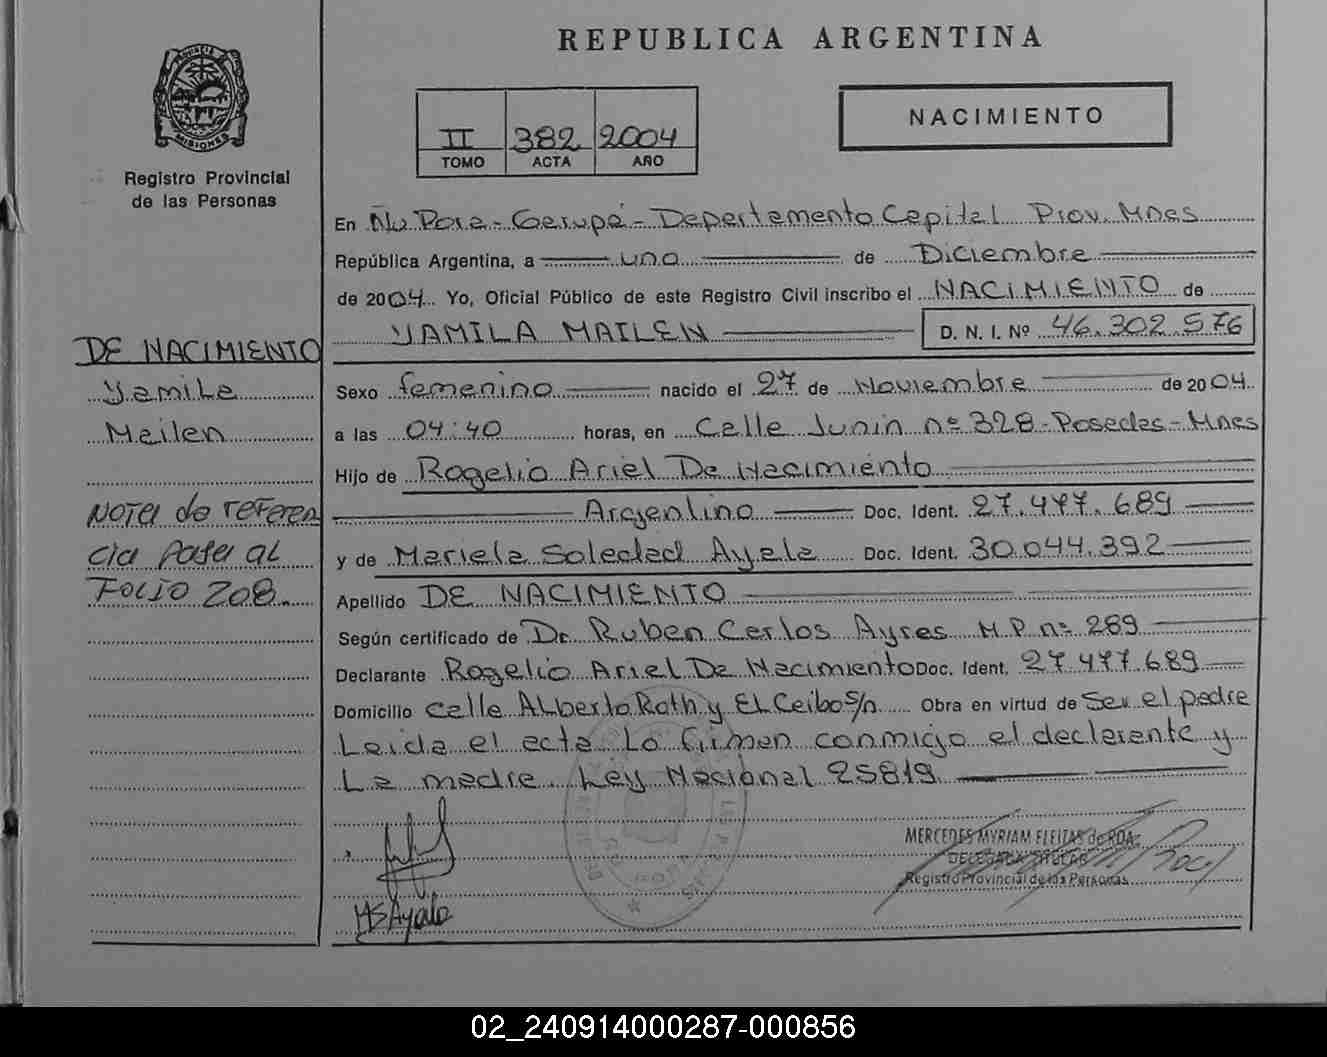 REPUBLICA ARGENTINA
PROVINCIA DE MISIONES
Registro Provincial
de las Personas
II 382 2004
TOMO ACTA AÑO
NACIMIENTO
En Ñu Pora - Garupá - Departamento Capital Prov. Mnes
República Argentina, a uno de Diciembre
de 2004 Yo, Oficial Público de este Registro Civil inscribo el NACIMIENTO de
YAMILA MAILEN D. N. I. Nº 46.302.576
Sexo femenino nacido el 27 de Noviembre de 2004
a las 04:40 horas, en Calle Junin nº 328 - Posadas - Mnes
Hijo de Rogelio Ariel De Nacimiento
Argentino Doc. Ident. 27.477.689
y de Mariela Soledad Ayala Doc. Ident. 30.044.392
Apellido DE NACIMIENTO
Según certificado de Dr. Ruben Carlos Ayres M.P. nº 289
Declarante Rogelio Ariel De Nacimiento Doc. Ident. 27.477.689
Domicilio calle Alberto Roth y El Ceibo S/n Obra en virtud de ser el padre
Leida el acta Lo firman conmigo el declarante y
La madre. Ley Nacional 25819
MERCEDES MYRIAM FLEITAS de ROA
DELEGADA TITULAR
Registro Provincial de las Personas
MSAyala
DE NACIMIENTO
Yamila
Mailen
NOTA de referen
cia Pasa al
FOLIO 208.
02_240914000287-000856